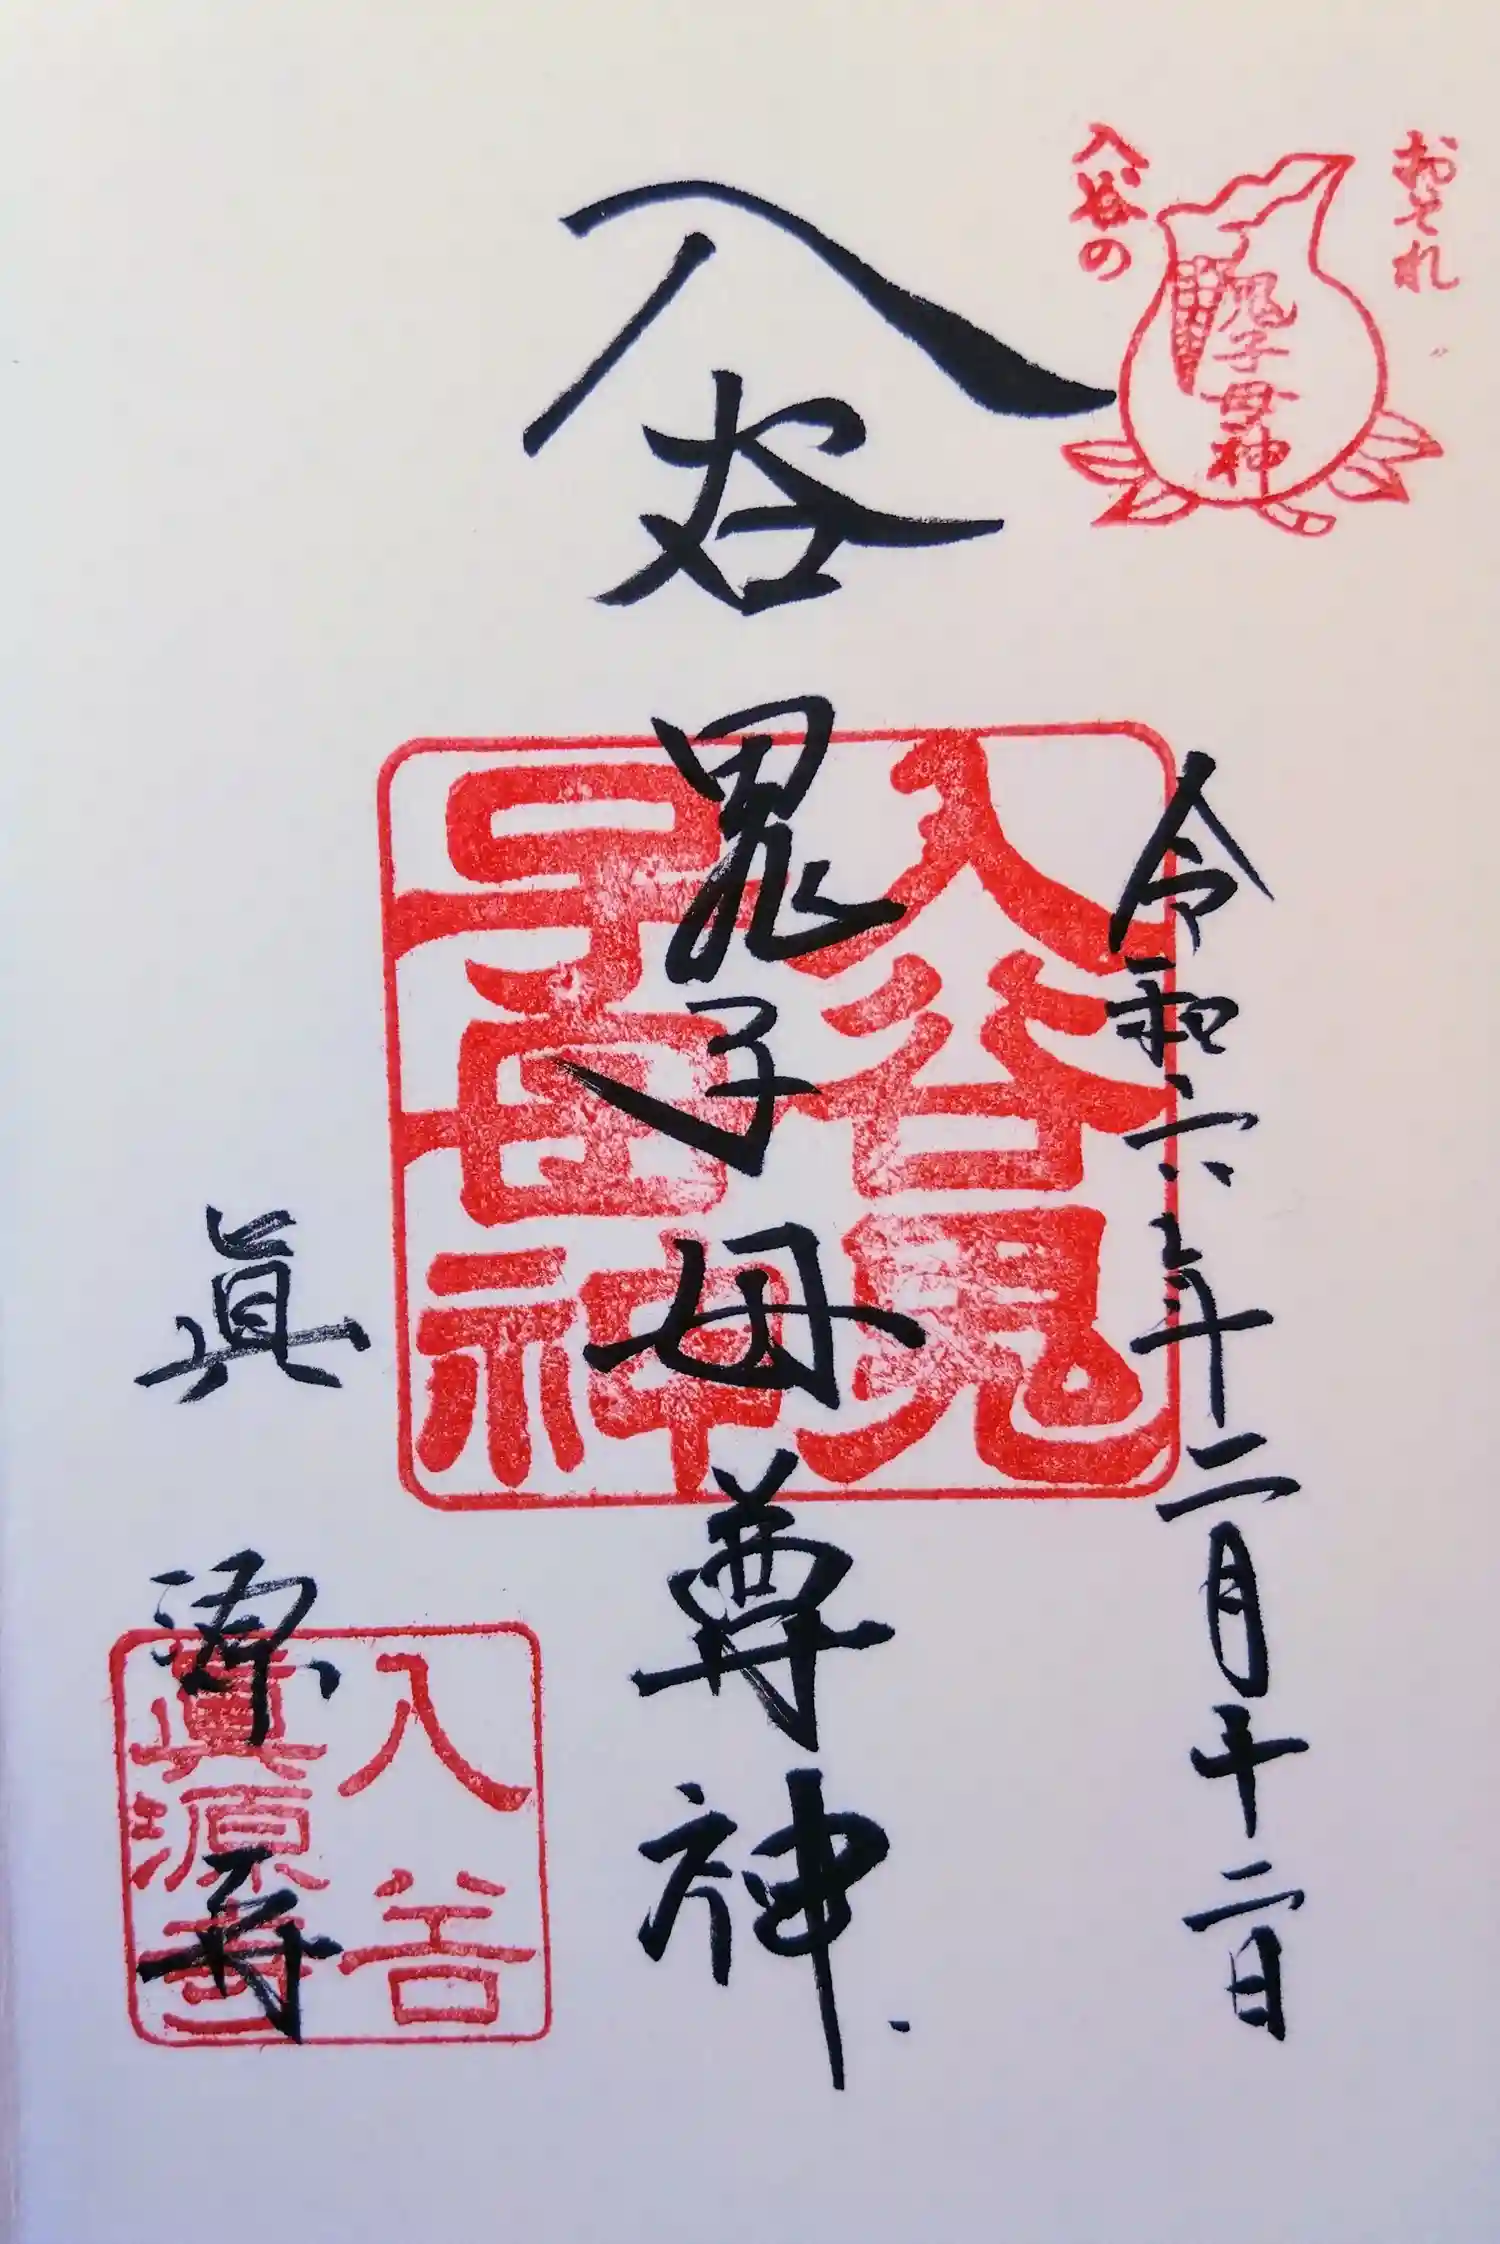 おそれ
入谷の
鬼子母神
令和六年二月十二日
入谷鬼子母尊神
入谷鬼
子母神
眞源寺
入谷
眞源寺